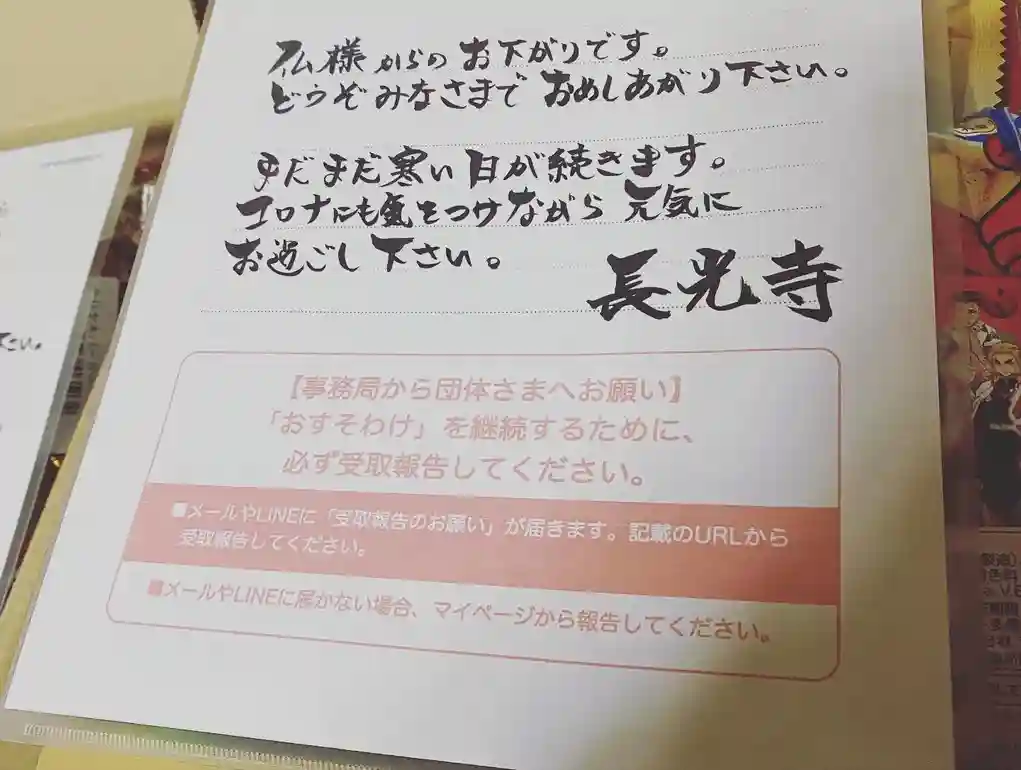 仏様からのお下がりです。
どうぞみなさまでおめしあがり下さい。
まだまだ寒い日が続きます。
コロナにも気をつけながら元気に
お過ごし下さい。
長光寺
【事務局から団体さまへお願い】
「おすそわけ」を継続するために、
必ず受取報告してください。
■メールやLINEに「受取報告のお願い」が届きます。記載のURLから
受取報告してください。
■メールやLINEに届かない場合、マイページから報告してください。
さい。